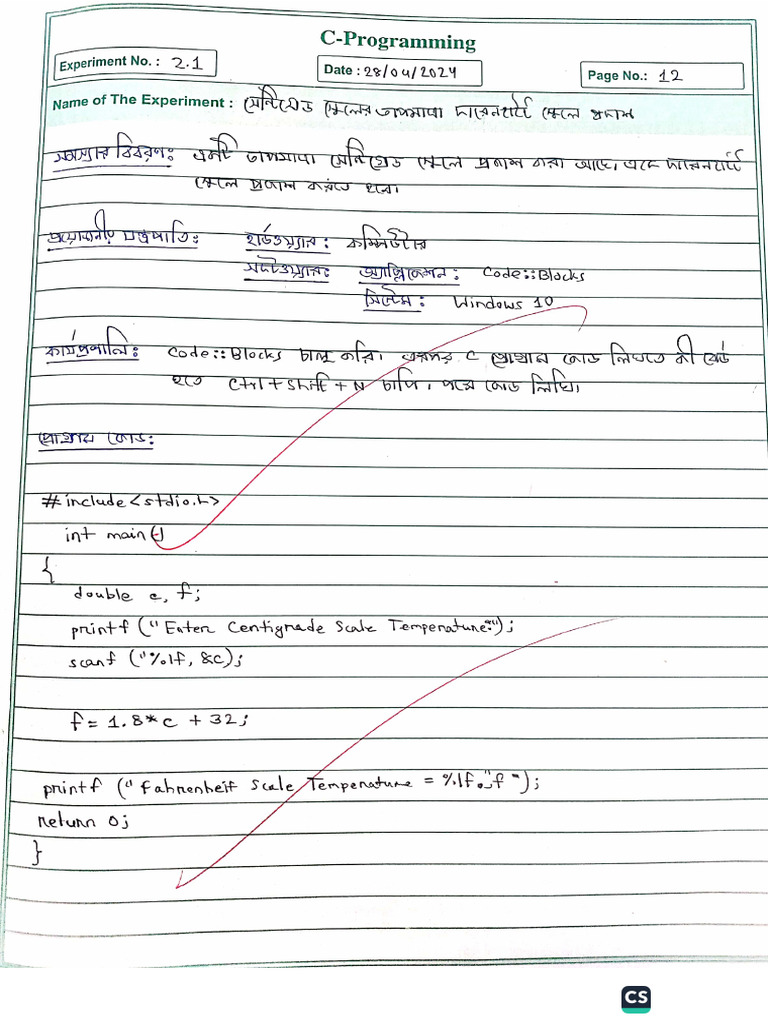 C-Programming
Experiment No. : 2.1
Date : 28/04/2024
Page No.: 12
Name of The Experiment : সেন্টিগ্রেড স্কেলের তাপমাত্রা ফারেনহাইট স্কেলে প্রকাশ
সমস্যার বিবরণ: একটি তাপমাত্রা সেন্টিগ্রেড স্কেলে প্রকাশ করা আছে, একে ফারেনহাইট
স্কেলে প্রকাশ করতে হবে।
প্রয়োজনীয় যন্ত্রপাতি: হার্ডওয়্যার: কম্পিউটার
সফটওয়্যার: অ্যাপ্লিকেশন: Code::Blocks
সিস্টেম: Windows 10
কার্যপ্রণালি: Code::Blocks চালু করি। এরপর C প্রোগ্রাম কোড লিখতে কী বোর্ড
হতে Ctrl+Shift+N চাপি। পরে কোড লিখি।
প্রোগ্রাম কোড:
#include<stdio.h>
int main()
{
double c, f;
printf ("Enter Centigrade Scale Temperature:");
scanf ("%lf, &c);
f= 1.8*c + 32;
printf ("Fahrenheit Scale Temperature = %lf. "f ");
return 0;
}
CS